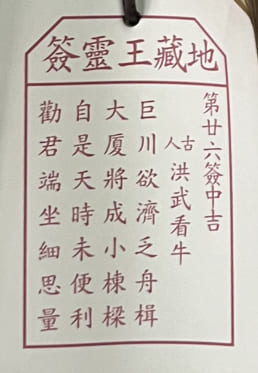 地藏王靈簽
第廿六簽中吉
古人
洪武看牛
巨川欲濟乏舟楫
大厦將成小棟樑
自是天時未便利
勸君端坐細思量